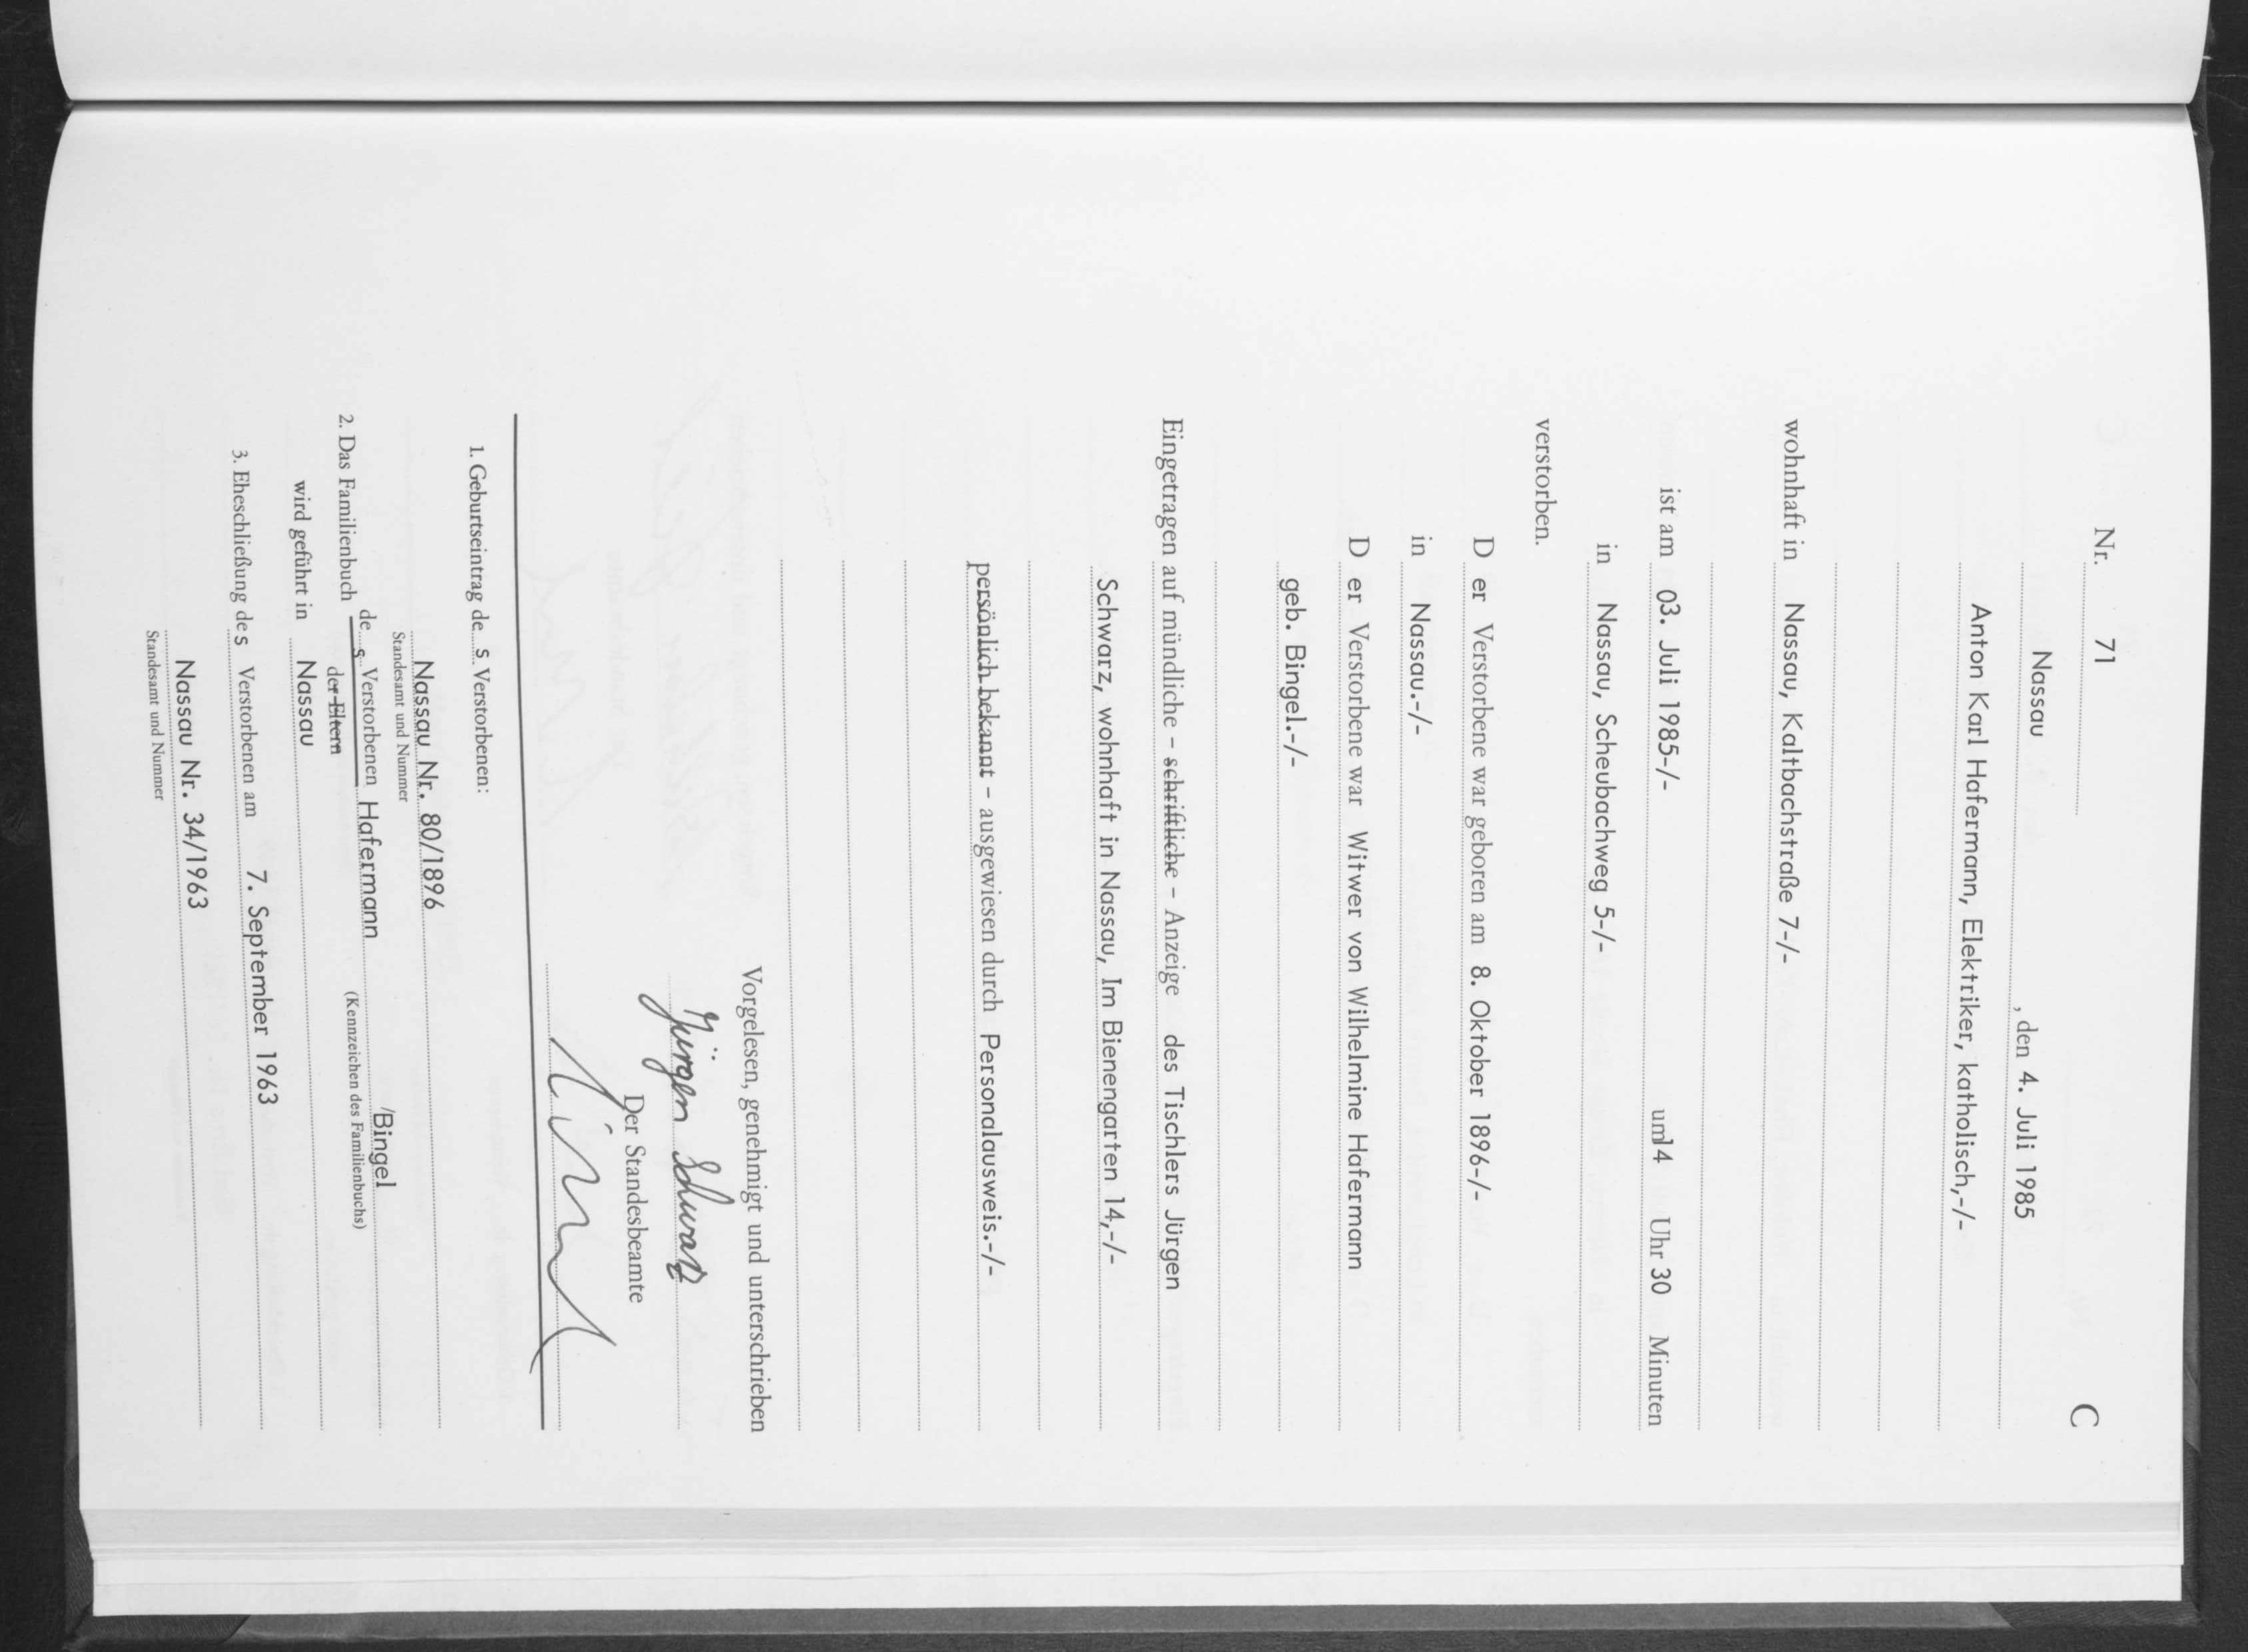 Nr. 71 C
Nassau , den 4. Juli 1985
Anton Karl Hafermann, Elektriker, katholisch,-/-
wohnhaft in Nassau, Kaltbachstraße 7-/-
ist am 03. Juli 1985-/- um 14 Uhr 30 Minuten
in Nassau, Scheubachweg 5-/-
verstorben.
D er Verstorbene war geboren am 8. Oktober 1896-/-
in Nassau.-/-
D er Verstorbene war Witwer von Wilhelmine Hafermann
geb. Bingel.-/-
Eingetragen auf mündliche – schriftliche – Anzeige des Tischlers Jürgen
Schwarz, wohnhaft in Nassau, Im Bienengarten 14,-/-
persönlich bekannt – ausgewiesen durch Personalausweis.-/-
Vorgelesen, genehmigt und unterschrieben
Jürgen Schwarz
Der Standesbeamte
1. Geburtseintrag de s Verstorbenen:
Nassau Nr. 80/1896
Standesamt und Nummer
2. Das Familienbuch de s Verstorbenen Hafermann /Bingel
der Eltern (Kennzeichen des Familienbuchs)
wird geführt in Nassau
3. Eheschließung des Verstorbenen am 7. September 1963
Nassau Nr. 34/1963
Standesamt und Nummer